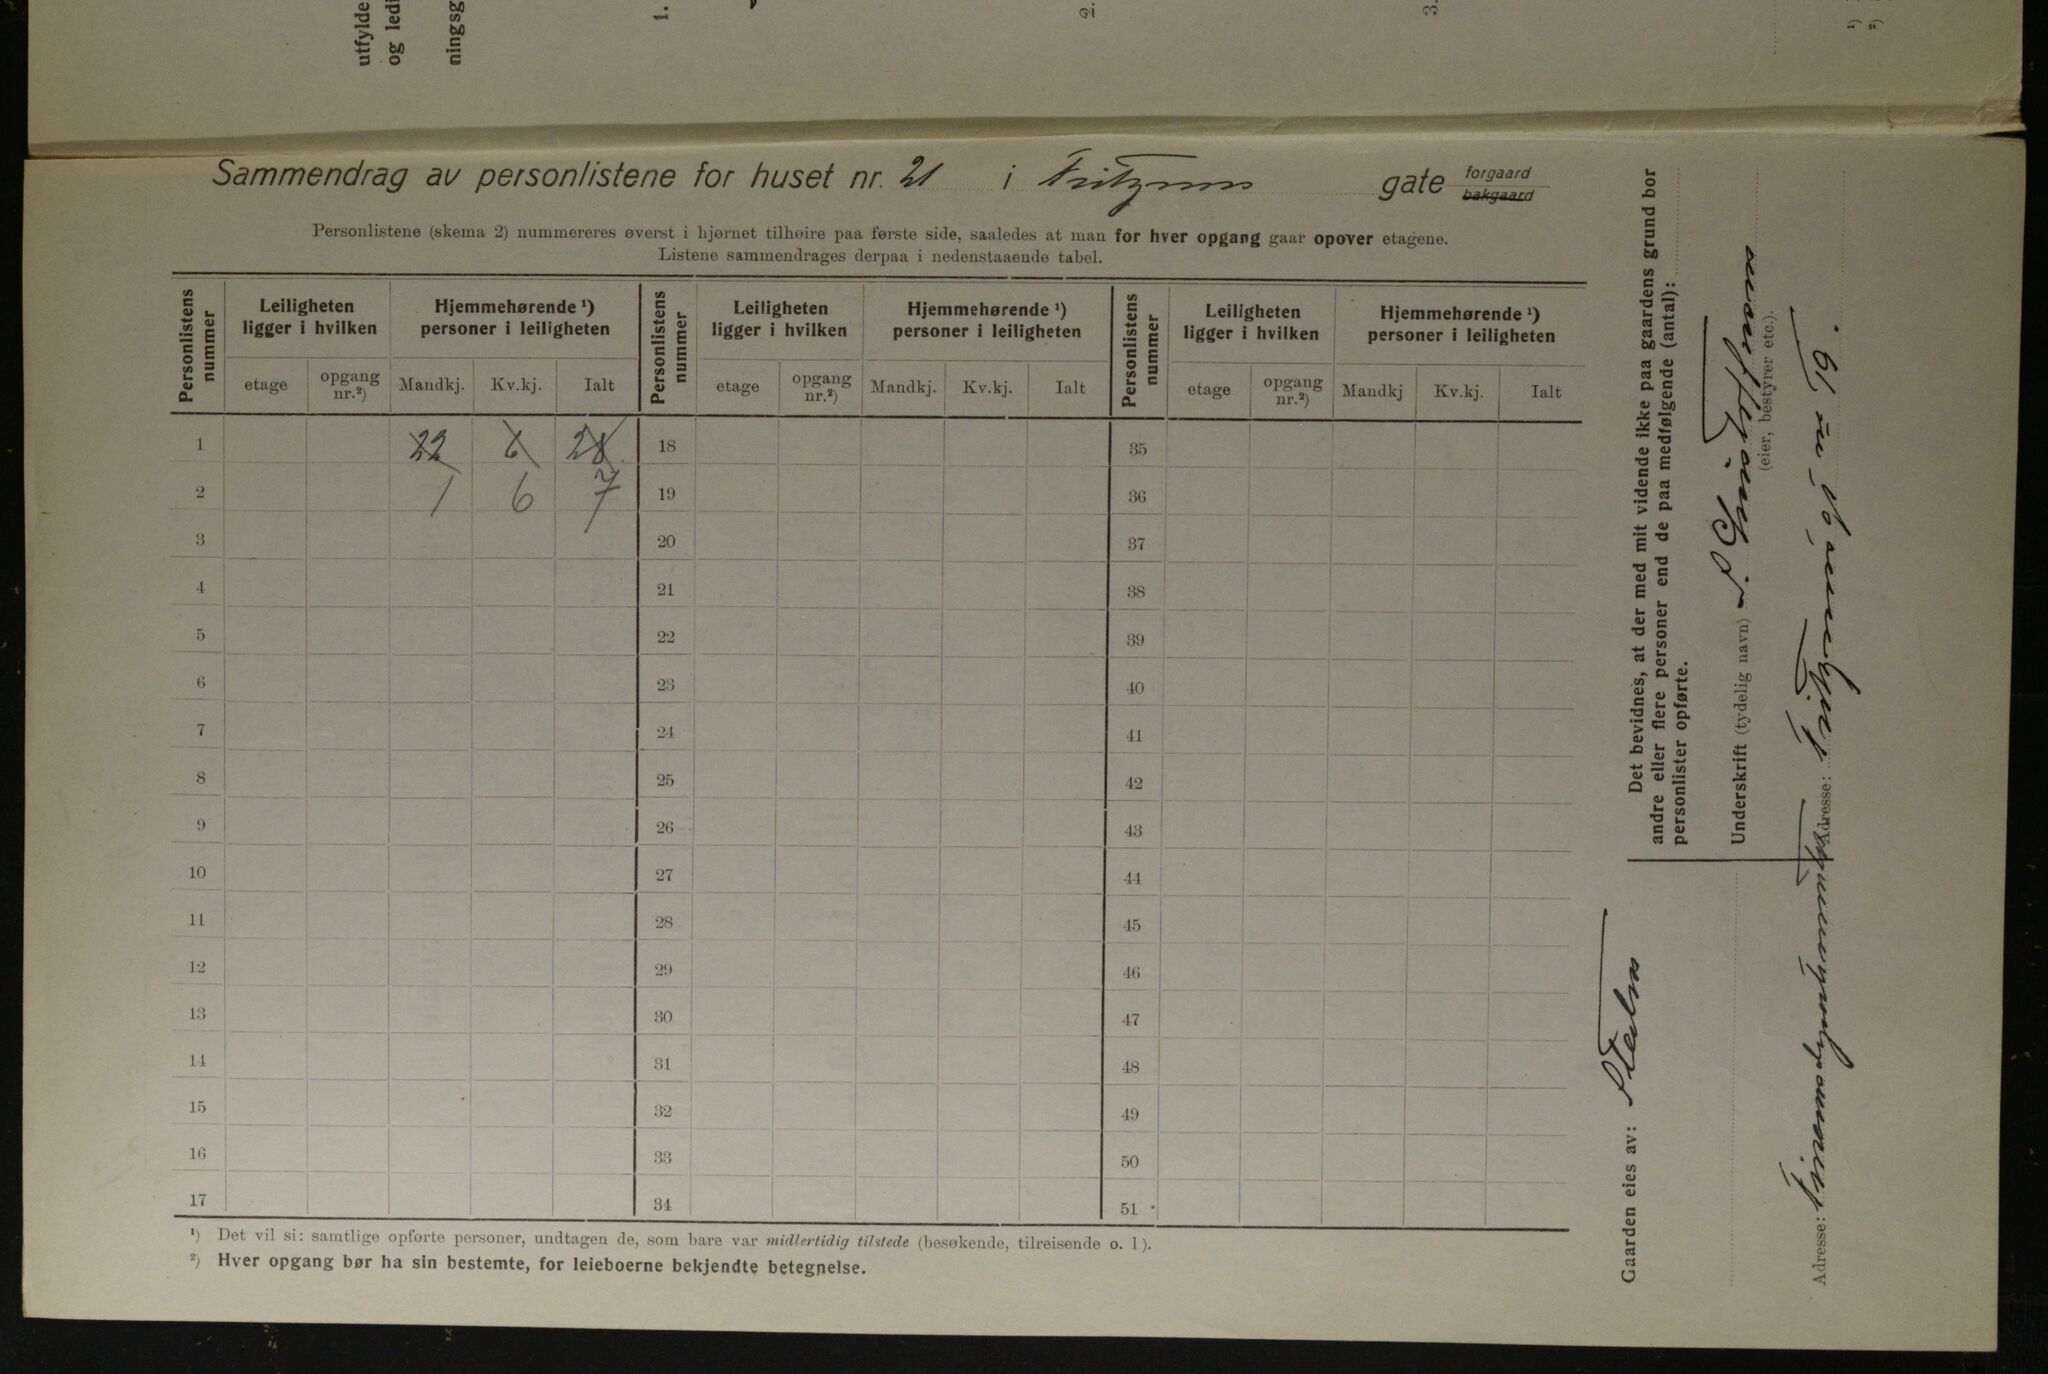 utfylde
og ledi
ningsg
1.
2.
3.
¹)
²)
Sammendrag av personlistene for huset nr. 21 i Fritzners gate forgaard
bakgaard
Personlistene (skema 2) nummereres øverst i hjørnet tilhøire paa første side, saaledes at man for hver opgang gaar opover etagene.
Listene sammendrages derpaa i nedenstaaende tabel.
Personlistens nummer | Leiligheten ligger i hvilken | Hjemmehørende ¹) personer i leiligheten | Personlistens nummer | Leiligheten ligger i hvilken | Hjemmehørende ¹) personer i leiligheten | Personlistens nummer | Leiligheten ligger i hvilken | Hjemmehørende ¹) personer i leiligheten
etage | opgang nr.²) | Mandkj. | Kv.kj. | Ialt | etage | opgang nr.²) | Mandkj. | Kv.kj. | Ialt | etage | opgang nr.²) | Mandkj | Kv.kj. | Ialt
1 22 6 28 18 35
2 1 6 7 19 36
3 20 37
4 21 38
5 22 39
6 23 40
7 24 41
8 25 42
9 26 43
10 27 44
11 28 45
12 29 46
13 30 47
14 31 48
15 32 49
16 33 50
17 34 51
¹) Det vil si: samtlige opførte personer, undtagen de, som bare var midlertidig tilstede (besøkende, tilreisende o. l).
²) Hver opgang bør ha sin bestemte, for leieboerne bekjendte betegnelse.
Det bevidnes, at der med mit vidende ikke paa gaardens grund bor
andre eller flere personer end de paa medfølgende (antal):
personlister opførte.
Underskrift (tydelig navn)
(eier, bestyrer etc.).
Adresse:
Gaarden eies av: Staten
Adresse: